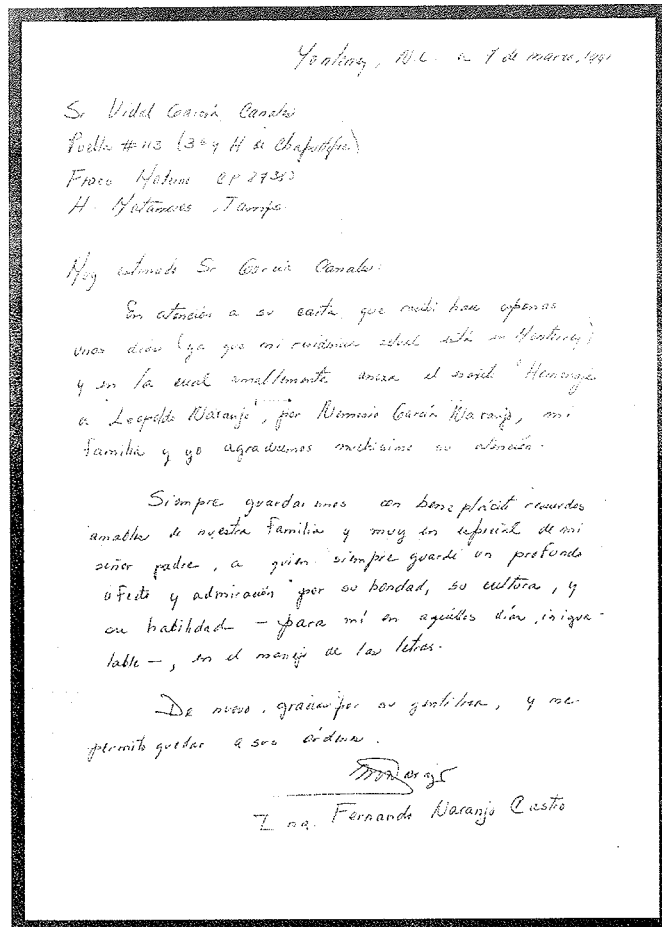 Monterrey, N.L. a 7 de marzo, 1991
Sr Vidal García Canales
Puebla # 113 (3a y H de Chapultepec)
Fracc Moderno CP 87380
H. Matamoros, Tamps.
Muy estimado Sr García Canales:
En atención a su carta que recibí hace apenas
unos días (ya que mi residencia actual está en Monterrey)
y en la cual amablemente anexa el escrito "Homenaje
a Leopoldo Naranjo", por Nemesio García Naranjo, mi
familia y yo agradecemos muchísimo su atención.
Siempre guardaremos con beneplácito recuerdos
amables de nuestra familia y muy en especial de mi
señor padre, a quien siempre guardé un profundo
afecto y admiración por su bondad, su cultura, y
su habilidad - para mí en aquéllos días, inigua-
lable -, en el manejo de las letras.
De nuevo, gracias por su gentileza, y me
permito quedar a sus órdenes.
Ing. Fernando Naranjo Castro